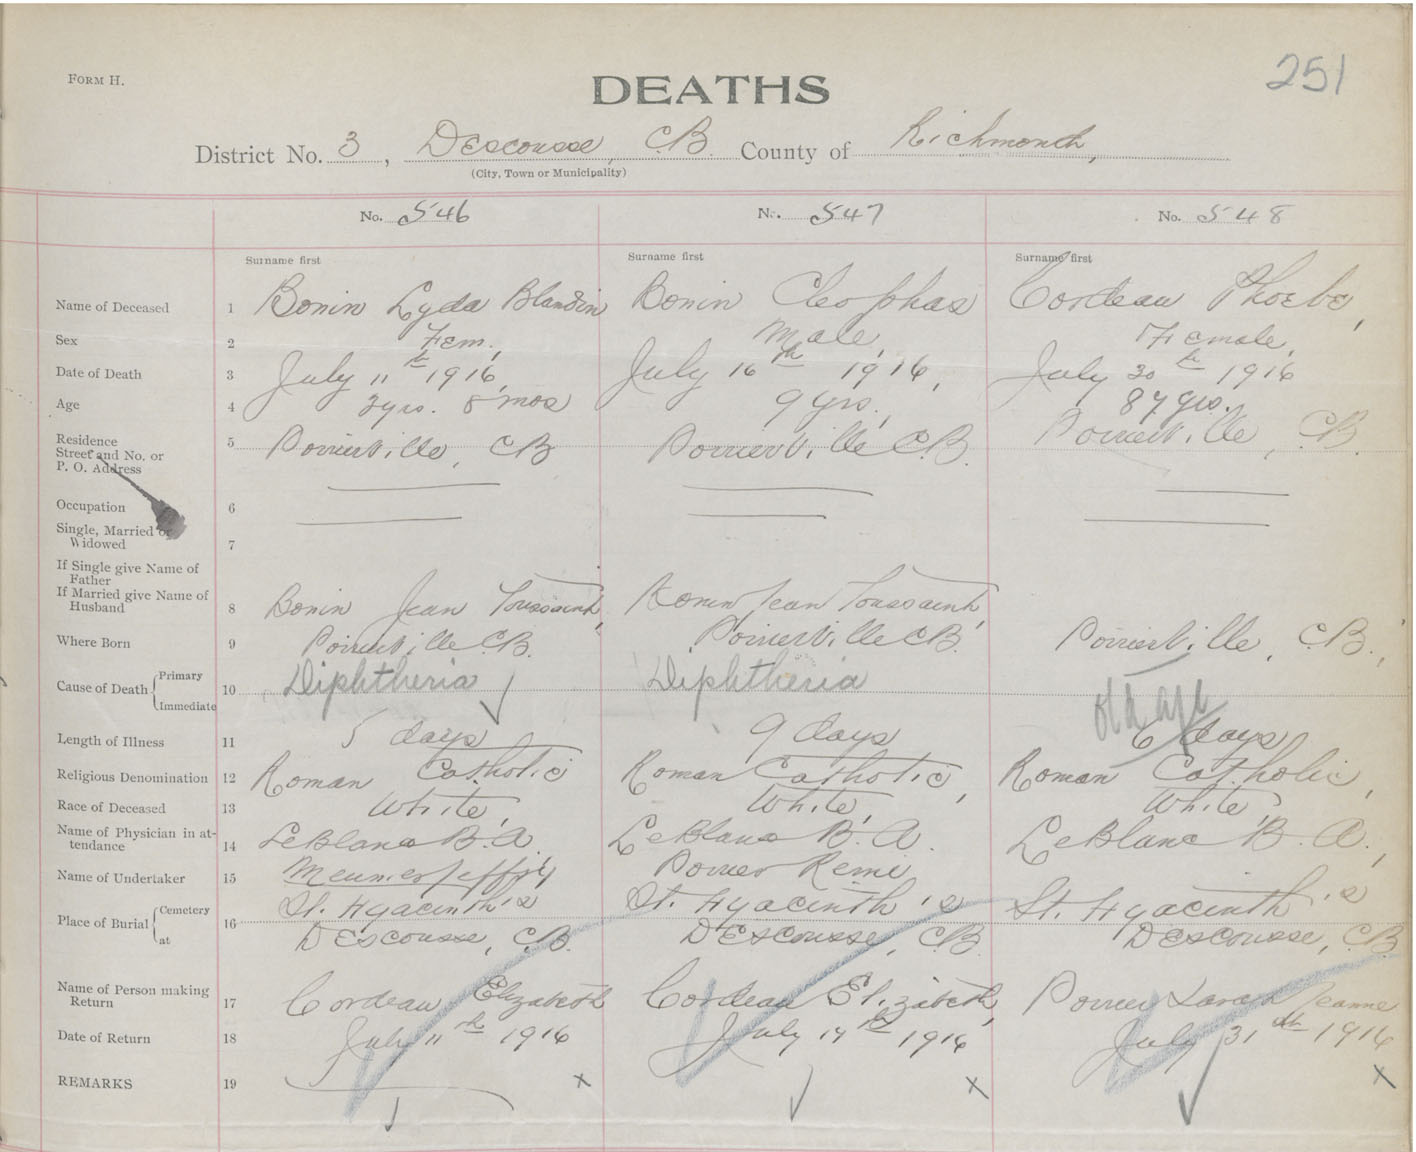 FORM H.
251
DEATHS
District No. 3, Descousse, CB. County of Richmond,
(City, Town or Municipality)
No. 546 No. 547 No. 548
Surname first Surname first Surname first
Name of Deceased 1 Bonin Lyda Blandin Bonin Cleophas Cordeau Phoebe,
Sex 2 Fem. Male, Female,
Date of Death 3 July 11th 1916, July 16th 1916, July 30th 1916
Age 4 3 yrs. 8 mos 9 yrs., 87 yrs.
Residence
Street and No. or 5 Poirierville, CB Poirierville CB. Poirierville, CB.
P. O. Address
Occupation 6
Single, Married or
Widowed 7
If Single give Name of
Father
If Married give Name of
Husband 8 Bonin Jean Toussaint, Bonin Jean Toussaint,
Where Born 9 Poirierville CB. Poirierville CB. Poirierville, CB.,
Primary
Cause of Death 10 Diphtheria Diphtheria old age
Immediate
Length of Illness 11 5 days 9 days 6 days
Religious Denomination 12 Roman Catholic Roman Catholic, Roman Catholic,
Race of Deceased 13 White, White, White,
Name of Physician in at-
tendance 14 LeBlanc B. A. LeBlanc B. A. LeBlanc B. A.,
Name of Undertaker 15 Meunier Jeffry Poirier Remi
Cemetery St. Hyacinth's St. Hyacinth's St. Hyacinth's
Place of Burial 16
at Descousse, CB. Descousse, CB. Descousse, CB
Name of Person making
Return 17 Cordeau Elizabeth Cordeau Elizabeth, Poirier Sarah Jeanne
Date of Return 18 July 11th 1916 July 17th 1916 July 31th 1916
REMARKS 19 x x x